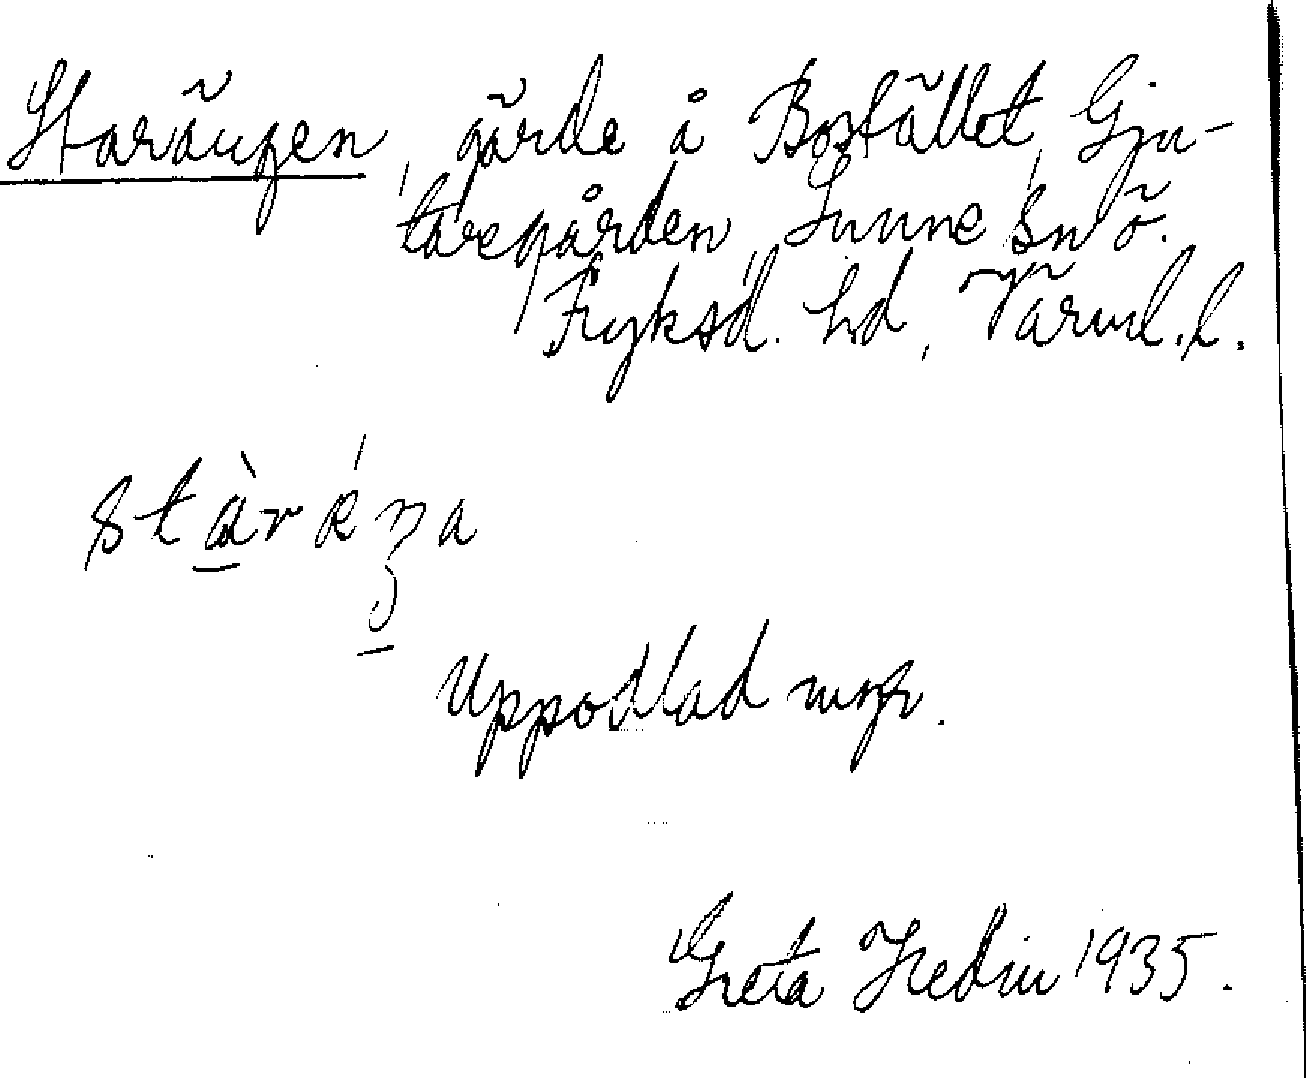 Starängen, gärde å Bostället, Gju-
taregården, Sunne sn ö.
Fryksd. hd, Värml. l.
stàrǽŋa
Uppodlad myr.
Greta Hedin 1935.